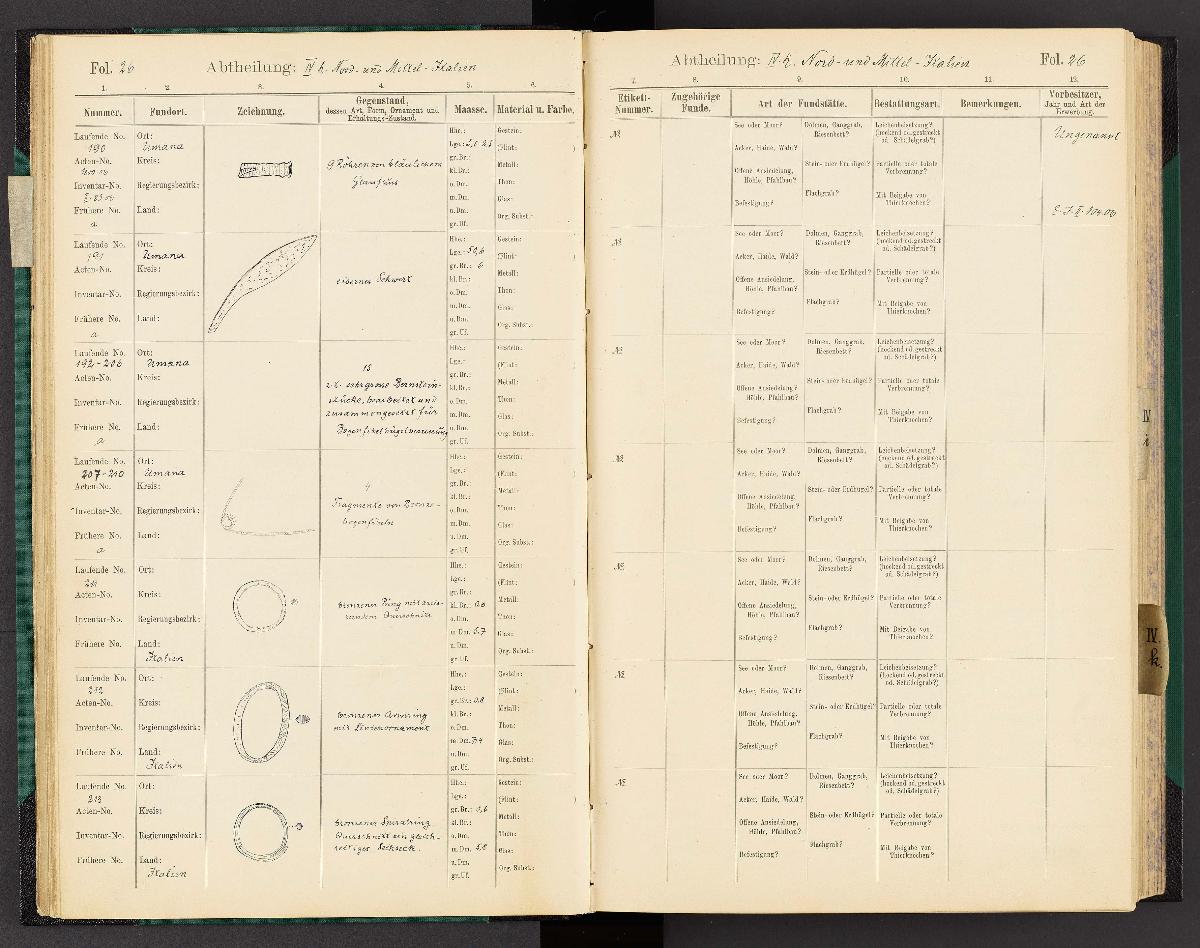 Fol. 26
Abtheilung: IV k. Nord- und Mittel-Italien
1. 2. 3. 4. 5. 6.
Nummer. Fundort. Zeichnung. Gegenstand, dessen Art, Form, Ornament und Erhaltungs-Zustand. Maasse. Material u. Farbe.
Laufende No. Ort: Hhe.: Gestein:
190 Umana
Lge.: (Flint: )
Acten-No. Kreis: gr. Br.: Metall:
kl. Br.:
Inventar-No. Regierungsbezirk: o. Dm. Thon:
m. Dm. Glas:
Frühere No. Land: u. Dm. Org. Subst.:
a gr. Uf.
9 Röhren von bläulichem
Glasfluss
Laufende No. Ort: Hhe.: Gestein:
191 Umana
Lge.: 50,6 (Flint: )
Acten-No. Kreis: gr. Br.: 6 Metall:
eisernes Schwert kl. Br.:
Inventar-No. Regierungsbezirk: o. Dm. Thon:
m. Dm. Glas:
Frühere No. Land: u. Dm. Org. Subst.:
a gr. Uf.
Laufende No. Ort: Hhe.: Gestein:
192-206 Umana
15 Lge.: (Flint: )
Acten-No. Kreis: gr. Br.: Metall:
z.T. sehr grosse Bernstein-
stücke, bearbeitet und
zusammengesetzt für
Bogenfibelbügelverzierung
kl. Br.:
Inventar-No. Regierungsbezirk: o. Dm. Thon:
m. Dm. Glas:
Frühere No. Land: u. Dm. Org. Subst.:
a gr. Uf.
Laufende No. Ort: Hhe.: Gestein:
207-210 Umana
4 Lge.: (Flint: )
Acten-No. Kreis: gr. Br.: Metall:
Fragmente von Bronze-
bogenfibeln
kl. Br.:
Inventar-No. Regierungsbezirk: o. Dm. Thon:
m. Dm. Glas:
Frühere No. Land: u. Dm. Org. Subst.:
a gr. Uf.
Laufende No. Ort: Hhe.: Gestein:
211 Lge.: (Flint: )
Acten-No. Kreis: gr. Br.: Metall:
bronzener Ring mit kreis-
rundem Querschnitt
kl. Br.: 0,6
Inventar-No. Regierungsbezirk: o. Dm. Thon:
m. Dm. 5,7 Glas:
Frühere No. Land: u. Dm. Org. Subst.:
Italien gr. Uf.
Laufende No. Ort: Hhe.: Gestein:
212 Lge.: (Flint: )
Acten-No. Kreis: gr. Br.: 0,8 Metall:
bronzener Armring
mit Linienornament
kl. Br.:
Inventar-No. Regierungsbezirk: o. Dm. Thon:
m. Dm. 7,4 Glas:
Frühere No. Land: u. Dm. Org. Subst.:
Italien gr. Uf.
Laufende No. Ort: Hhe.: Gestein:
213 Lge.: (Flint: )
Acten-No. Kreis: gr. Br.: 0,6 Metall:
bronzener Spiralring
Querschnitt ein gleich-
seitiges Sechseck.
kl. Br.:
Inventar-No. Regierungsbezirk: o. Dm. Thon:
m. Dm. 5,8 Glas:
Frühere No. Land: u. Dm. Org. Subst.:
Italien gr. Uf.
Abtheilung: IV k. Nord- und Mittel-Italien
Fol. 26
7. 8. 9. 10. 11. 12.
Etikett-Nummer. Zugehörige Funde. Art der Fundstätte. Bestattungsart. Bemerkungen. Vorbesitzer, Jahr und Art der Erwerbung.
№ See oder Moor? Dolmen, Ganggrab, Riesenbett? Leichenbeisetzung? (hockend od. gestreckt od. Schädelgrab?) Ungenannt
Acker, Haide, Wald? Stein- oder Erdhügel? Partielle oder totale Verbrennung?
Offene Ansiedelung, Höhle, Pfahlbau? Flachgrab? Mit Beigabe von Thierknochen?
Befestigung? E. J. II. 104.00
№ See oder Moor? Dolmen, Ganggrab, Riesenbett? Leichenbeisetzung? (hockend od. gestreckt od. Schädelgrab?)
Acker, Haide, Wald? Stein- oder Erdhügel? Partielle oder totale Verbrennung?
Offene Ansiedelung, Höhle, Pfahlbau? Flachgrab? Mit Beigabe von Thierknochen?
Befestigung?
№ See oder Moor? Dolmen, Ganggrab, Riesenbett? Leichenbeisetzung? (hockend od. gestreckt od. Schädelgrab?)
Acker, Haide, Wald? Stein- oder Erdhügel? Partielle oder totale Verbrennung?
Offene Ansiedelung, Höhle, Pfahlbau? Flachgrab? Mit Beigabe von Thierknochen?
Befestigung?
№ See oder Moor? Dolmen, Ganggrab, Riesenbett? Leichenbeisetzung? (hockend od. gestreckt od. Schädelgrab?)
Acker, Haide, Wald? Stein- oder Erdhügel? Partielle oder totale Verbrennung?
Offene Ansiedelung, Höhle, Pfahlbau? Flachgrab? Mit Beigabe von Thierknochen?
Befestigung?
№ See oder Moor? Dolmen, Ganggrab, Riesenbett? Leichenbeisetzung? (hockend od. gestreckt od. Schädelgrab?)
Acker, Haide, Wald? Stein- oder Erdhügel? Partielle oder totale Verbrennung?
Offene Ansiedelung, Höhle, Pfahlbau? Flachgrab? Mit Beigabe von Thierknochen?
Befestigung?
№ See oder Moor? Dolmen, Ganggrab, Riesenbett? Leichenbeisetzung? (hockend od. gestreckt od. Schädelgrab?)
Acker, Haide, Wald? Stein- oder Erdhügel? Partielle oder totale Verbrennung?
Offene Ansiedelung, Höhle, Pfahlbau? Flachgrab? Mit Beigabe von Thierknochen?
Befestigung?
№ See oder Moor? Dolmen, Ganggrab, Riesenbett? Leichenbeisetzung? (hockend od. gestreckt od. Schädelgrab?)
Acker, Haide, Wald? Stein- oder Erdhügel? Partielle oder totale Verbrennung?
Offene Ansiedelung, Höhle, Pfahlbau? Flachgrab? Mit Beigabe von Thierknochen?
Befestigung?
IV
i
IV.
k.